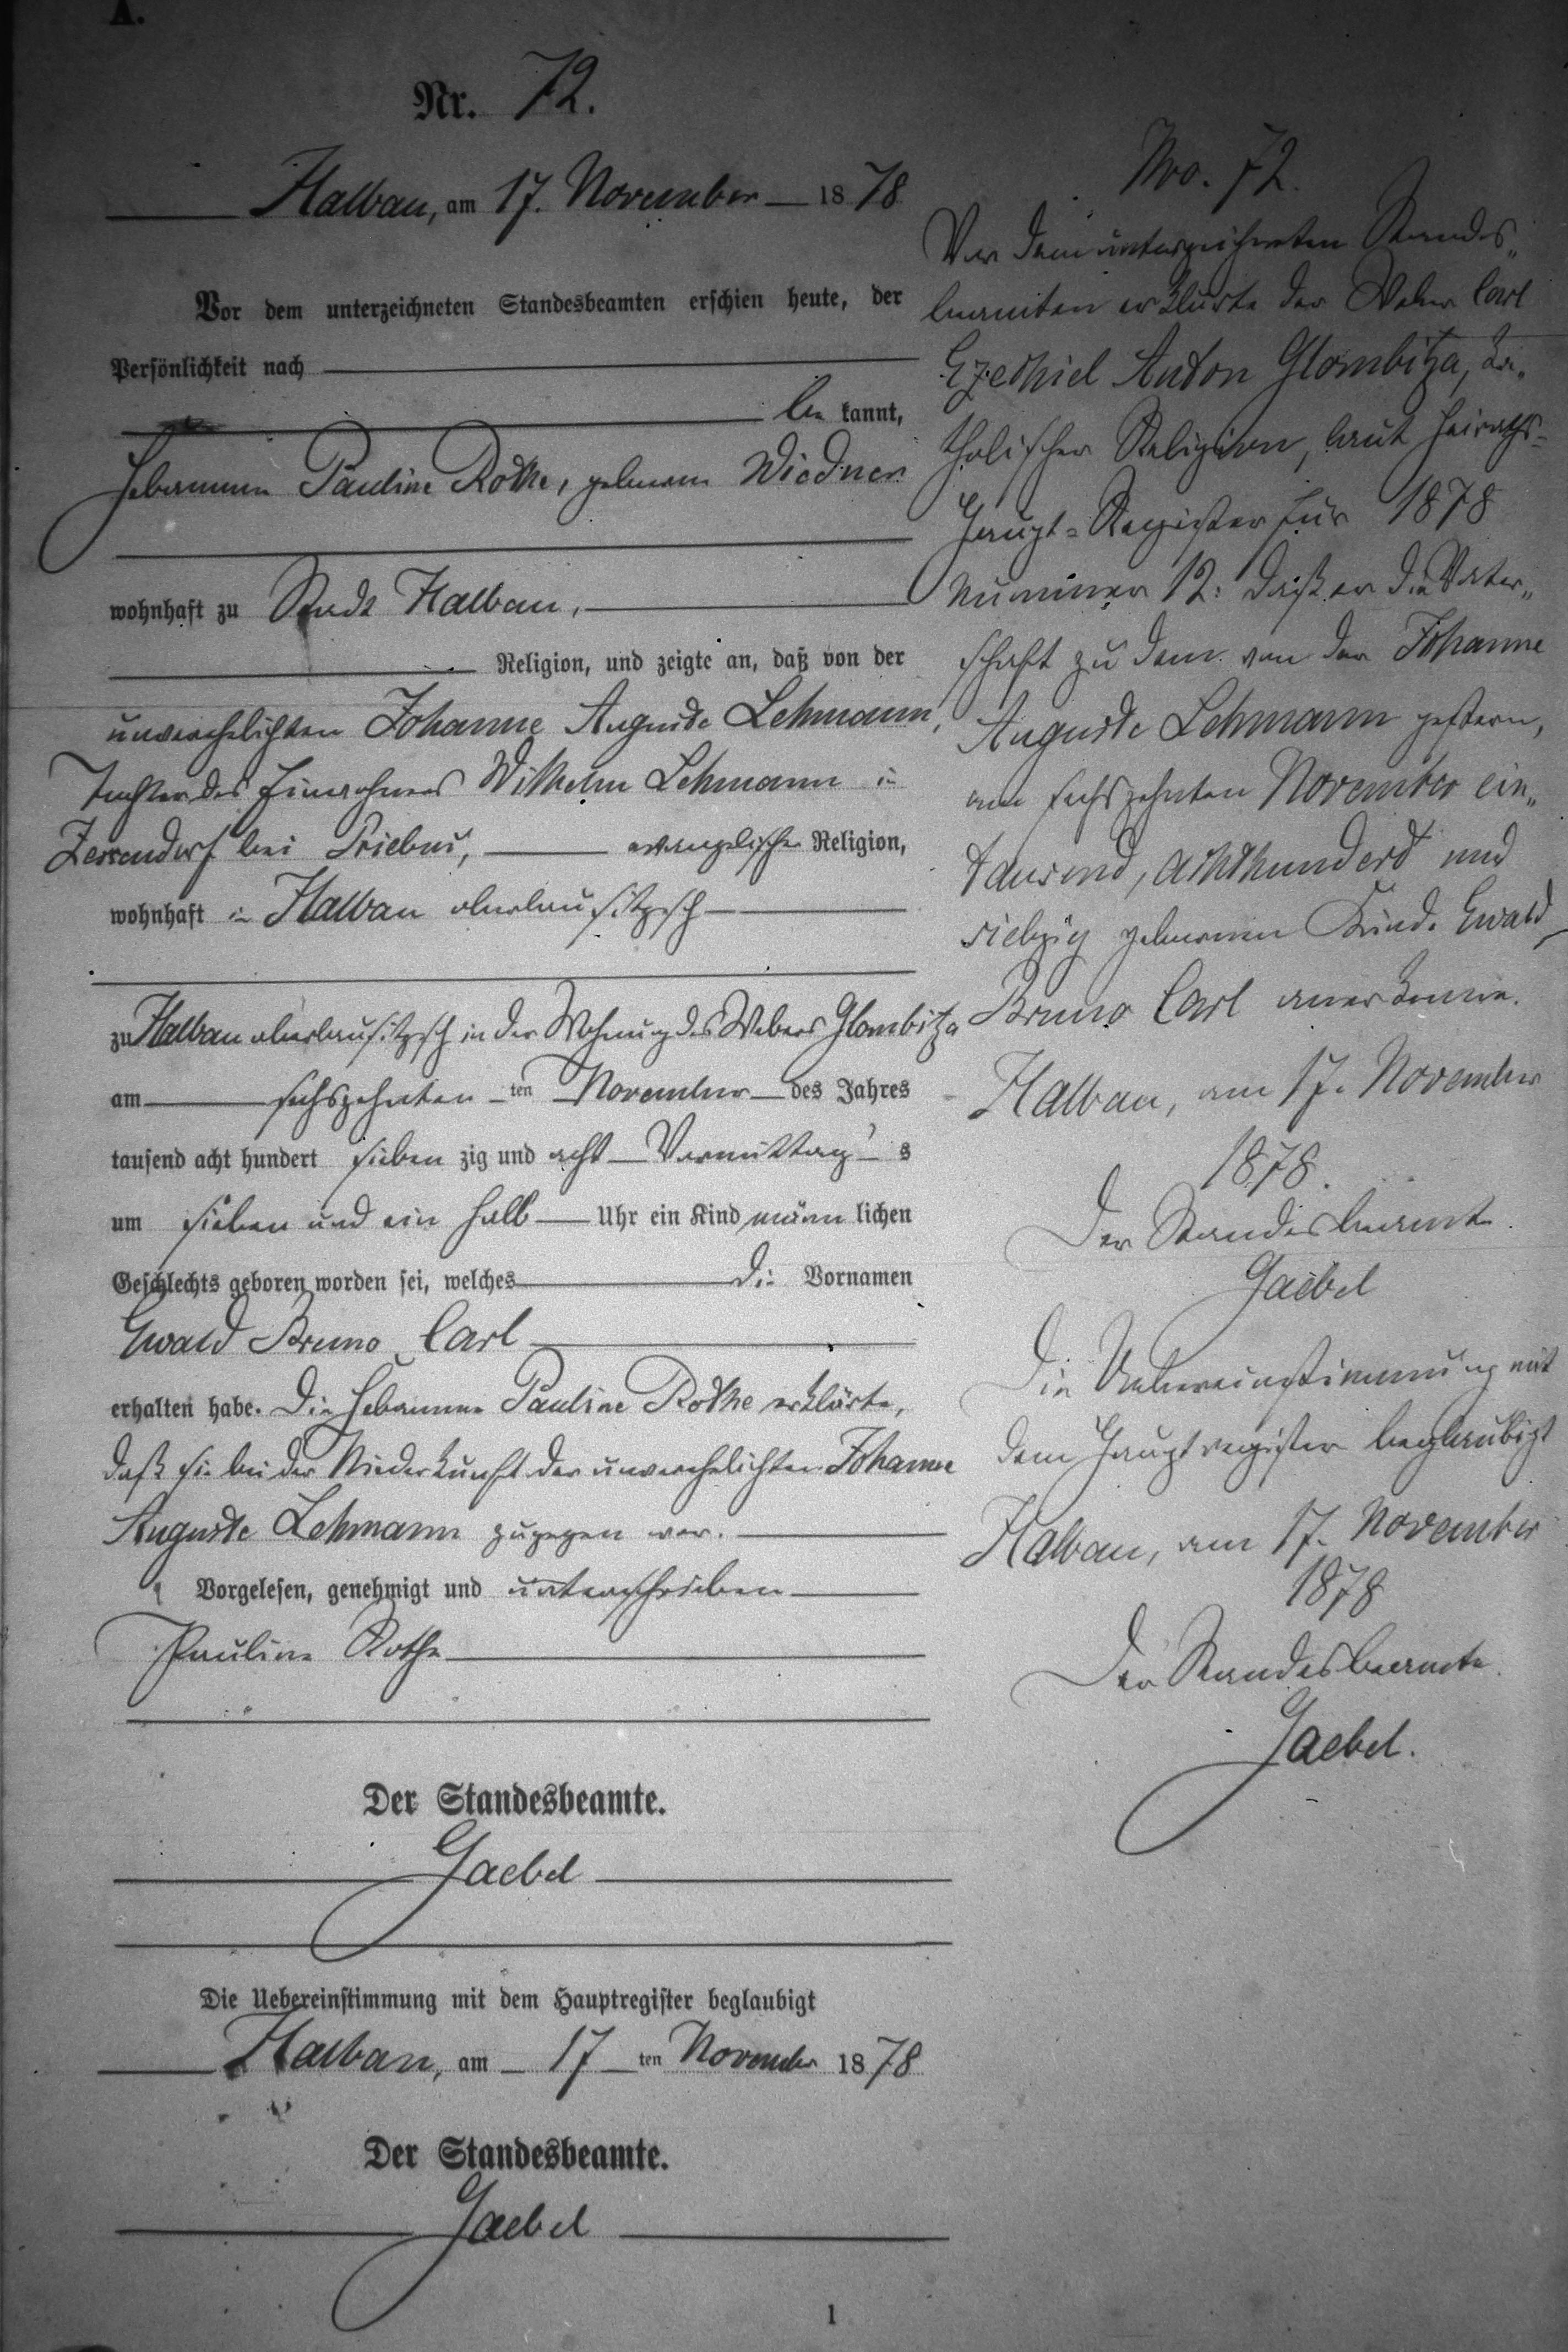 A.
Nr. 72.
Halbau, am 17. November 1878
Vor dem unterzeichneten Standesbeamten erschien heute, der
Persönlichkeit nach
be kannt,
Hebamme Pauline Rothe, geborene Wiedner
wohnhaft zu Stadt Halbau,
Religion, und zeigte an, daß von der
unverehelichten Johanne Auguste Lehmann,
Tochter des Einwohners Wilhelm Lehmann in
Zessendorf bei Priebus, evangelischer Religion,
wohnhaft in Halbau oberlausitzisch
zu Halbau oberlausitzisch in der Wohnung des Webers Glombitza
am sechszehnten ten November des Jahres
tausend acht hundert sieben zig und acht Vormittag s
um sieben und ein halb Uhr ein Kind männ lichen
Geschlechts geboren worden sei, welches die Vornamen
Ewald Bruno Carl
erhalten habe. Die Hebamme Pauline Rothe erklärte,
daß sie bei der Niederkunft der unverehelichten Johanne
Auguste Lehmann zugegen war.
Vorgelesen, genehmigt und unterschrieben
Pauline Rothe
Der Standesbeamte.
Gaebel
Die Uebereinstimmung mit dem Hauptregister beglaubigt
Halbau, am 17 ten November 1878
Der Standesbeamte.
Gaebel
1
Nro. 72.
Vor dem unterzeichneten Standes„
beamten erklärte der Weber Carl
Ezechiel Anton Glombitza, ka„
tholischer Religion, laut Heiraths-
Haupt-Register für 1878
Nummer 12: daß er die Vater„
schaft zu dem von der Johanne
Auguste Lehmann gestern,
am sechszehnten November ein„
tausend, achthundert und
siebzig geborenen Kinde Ewald
Bruno Carl anerkenne.
Halbau, am 17. November
1878.
Der Standesbeamte.
Gaebel
Die Uebereinstimmung mit
dem Hauptregister beglaubigt
Halbau, am 17. November
1878
Der Standesbeamte.
Gaebel.